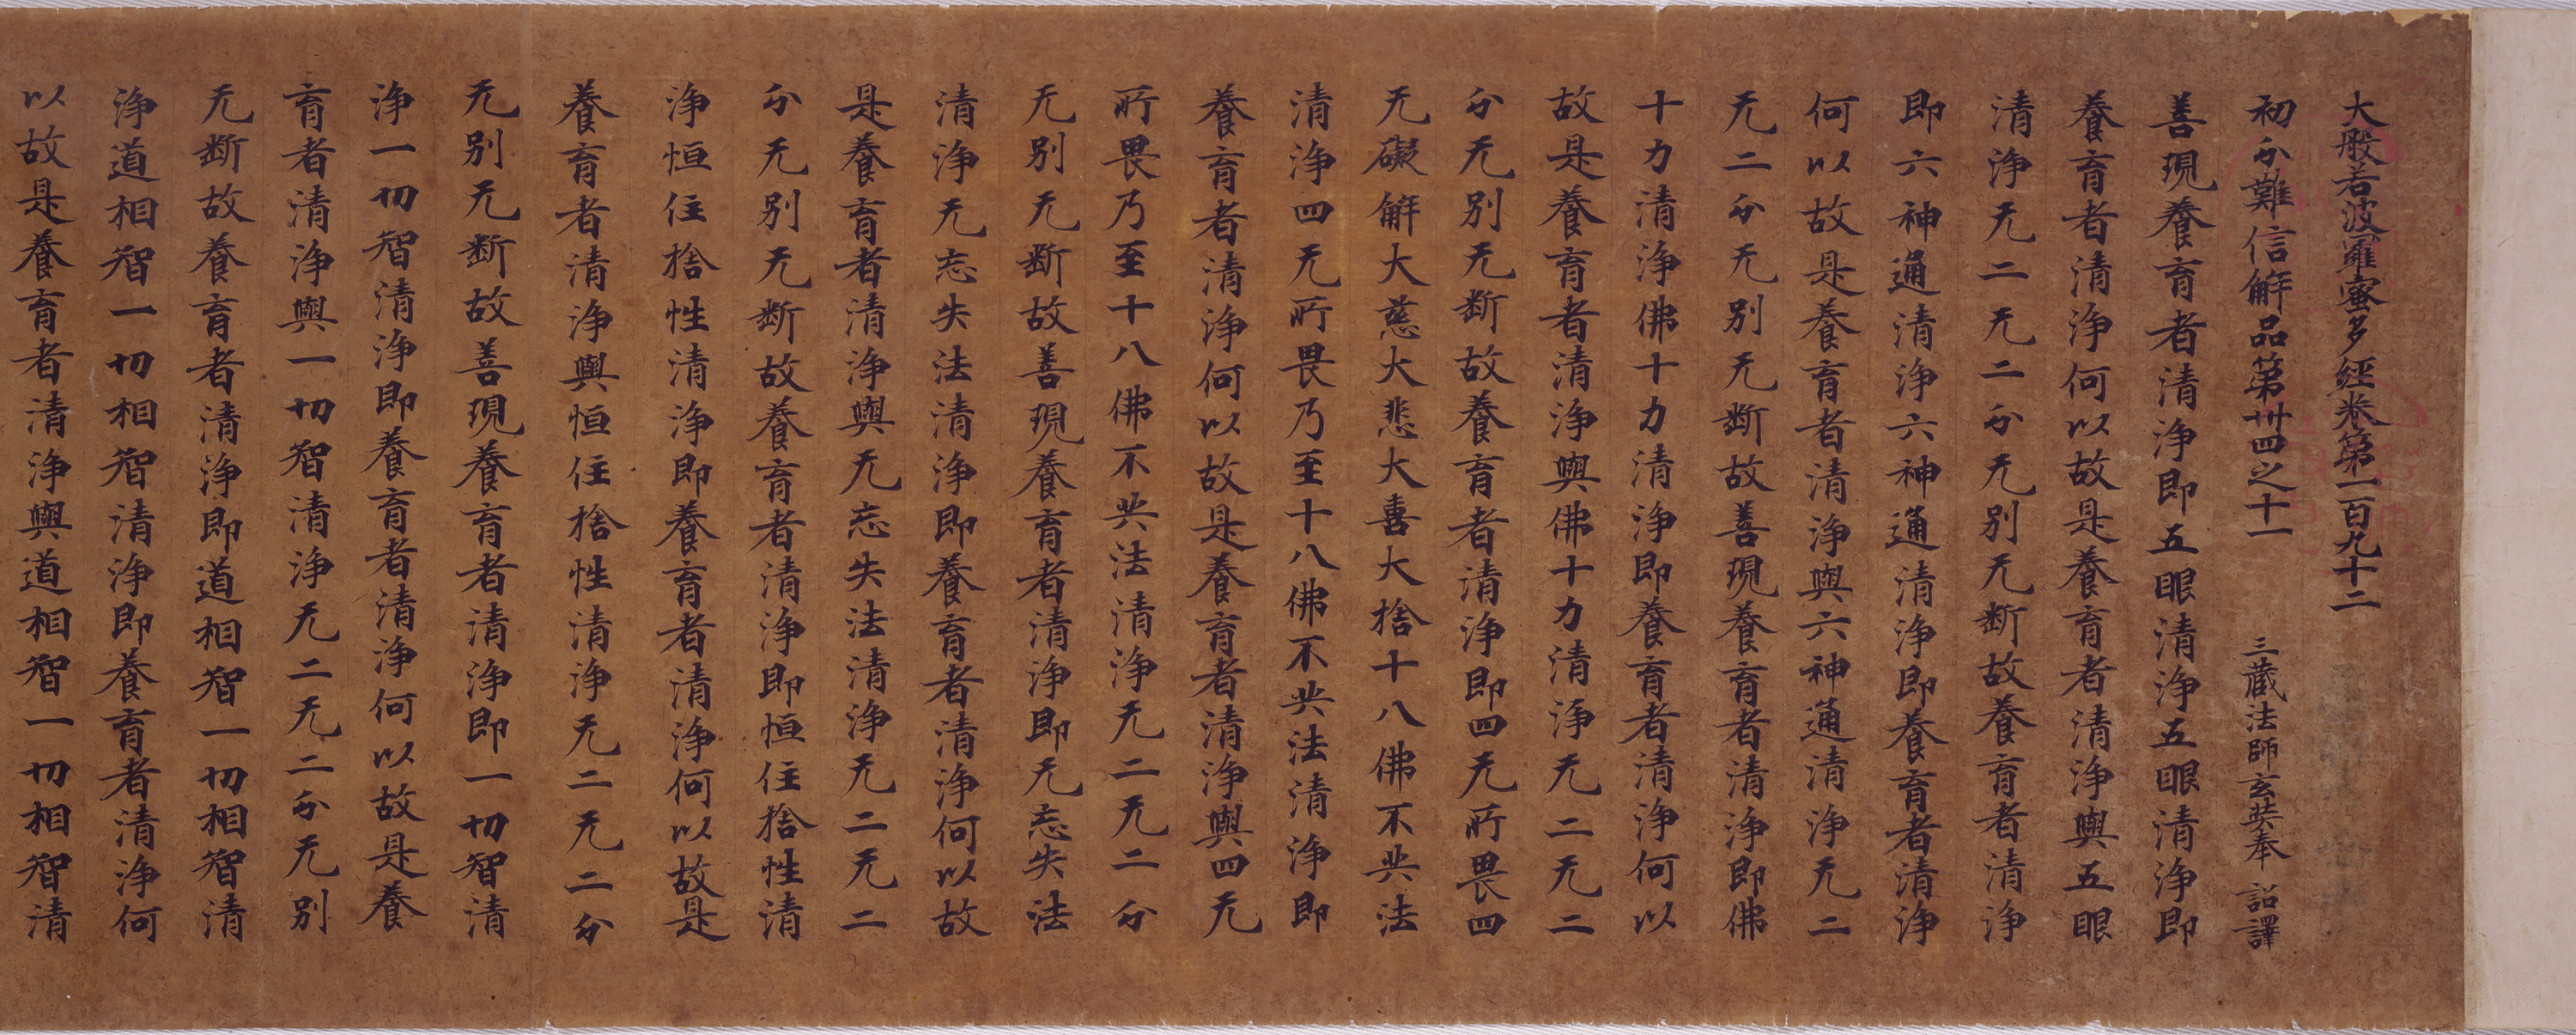 大般若波羅蜜多經卷第一百九十二
初分難信解品第卅四之十一 三藏法師玄奘奉 詔譯
善現養育者清淨即五眼清淨五眼清淨即
養育者清淨何以故是養育者清淨與五眼
清淨无二无二分无別无斷故養育者清淨
即六神通清淨六神通清淨即養育者清淨
何以故是養育者清淨與六神通清淨无二
无二分无別无斷故善現養育者清淨即佛
十力清淨佛十力清淨即養育者清淨何以
故是養育者清淨與佛十力清淨无二无二
分无別无斷故養育者清淨即四无所畏四
无礙解大慈大悲大喜大捨十八佛不共法
清淨四无所畏乃至十八佛不共法清淨即
養育者清淨何以故是養育者清淨與四无
所畏乃至十八佛不共法清淨无二无二分
无別无斷故善現養育者清淨即无忘失法
清淨无忘失法清淨即養育者清淨何以故
是養育者清淨與无忘失法清淨无二无二
分无別无斷故養育者清淨即恒住捨性清
淨恒住捨性清淨即養育者清淨何以故是
養育者清淨與恒住捨性清淨无二无二分
无別无斷故善現養育者清淨即一切智清
淨一切智清淨即養育者清淨何以故是養
育者清淨與一切智清淨无二无二分无別
无斷故養育者清淨即道相智一切相智清
淨道相智一切相智清淨即養育者清淨何
以故是養育者清淨與道相智一切相智清